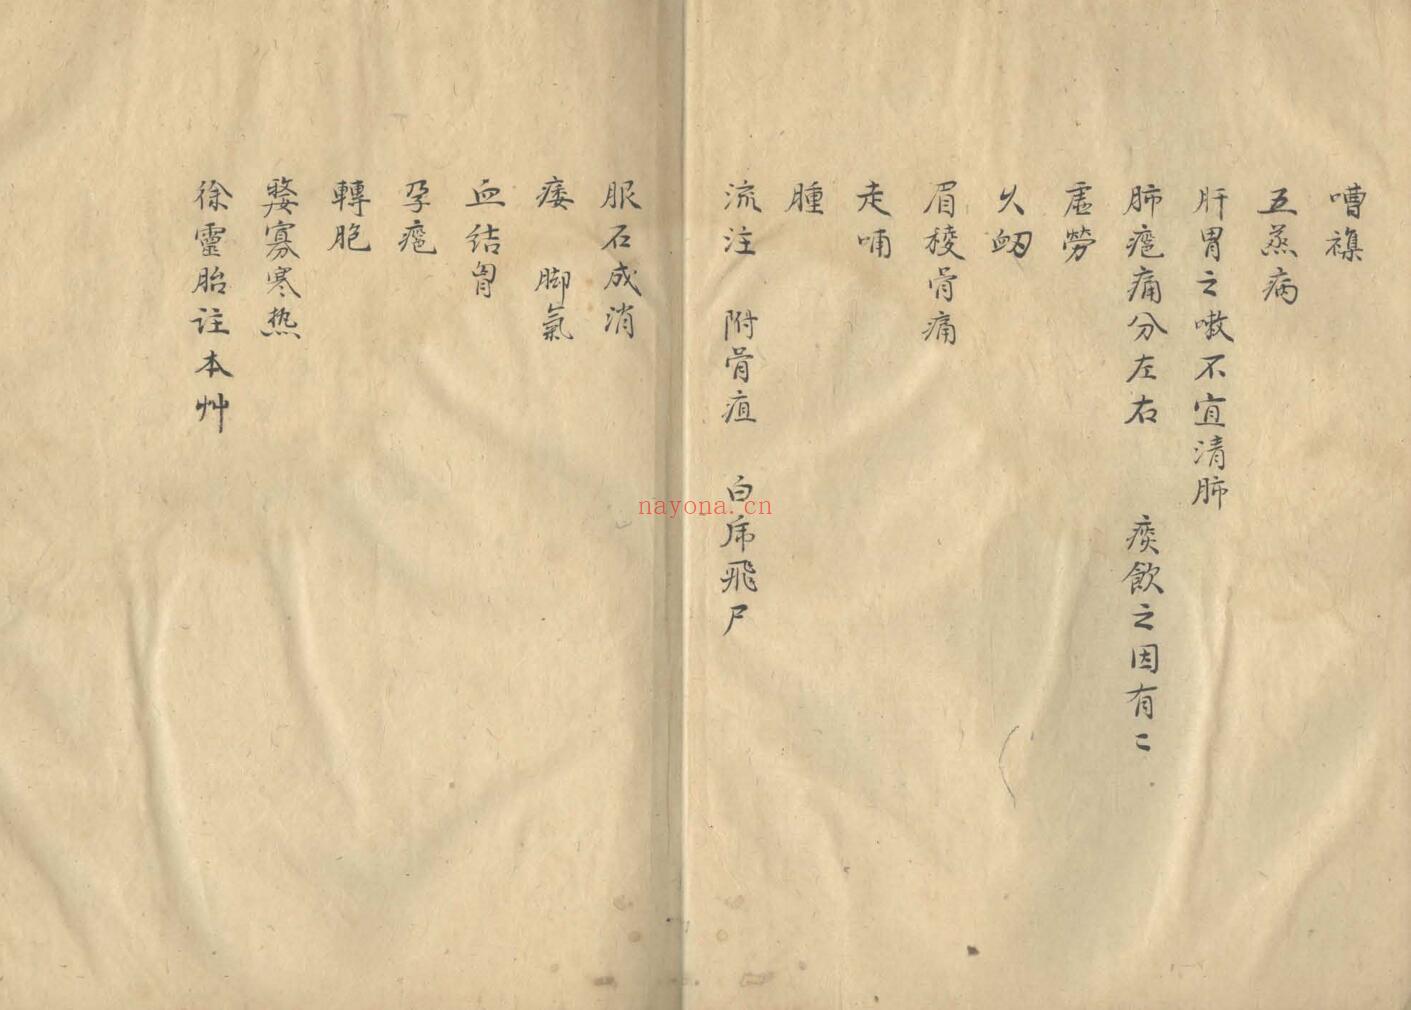 嘈襍
五蒸病
肝胃之嗽不宜清肺
肺癰痛分左右　痰飲之因有二
虛勞
火衂
眉稜骨痛
走哺
腫
流注　附骨疽　白虎飛尸
服石成消
痿　脚氣
血結胷
孕癰
轉胞
嫠寡寒热
徐靈胎註本艸
nayona.cn